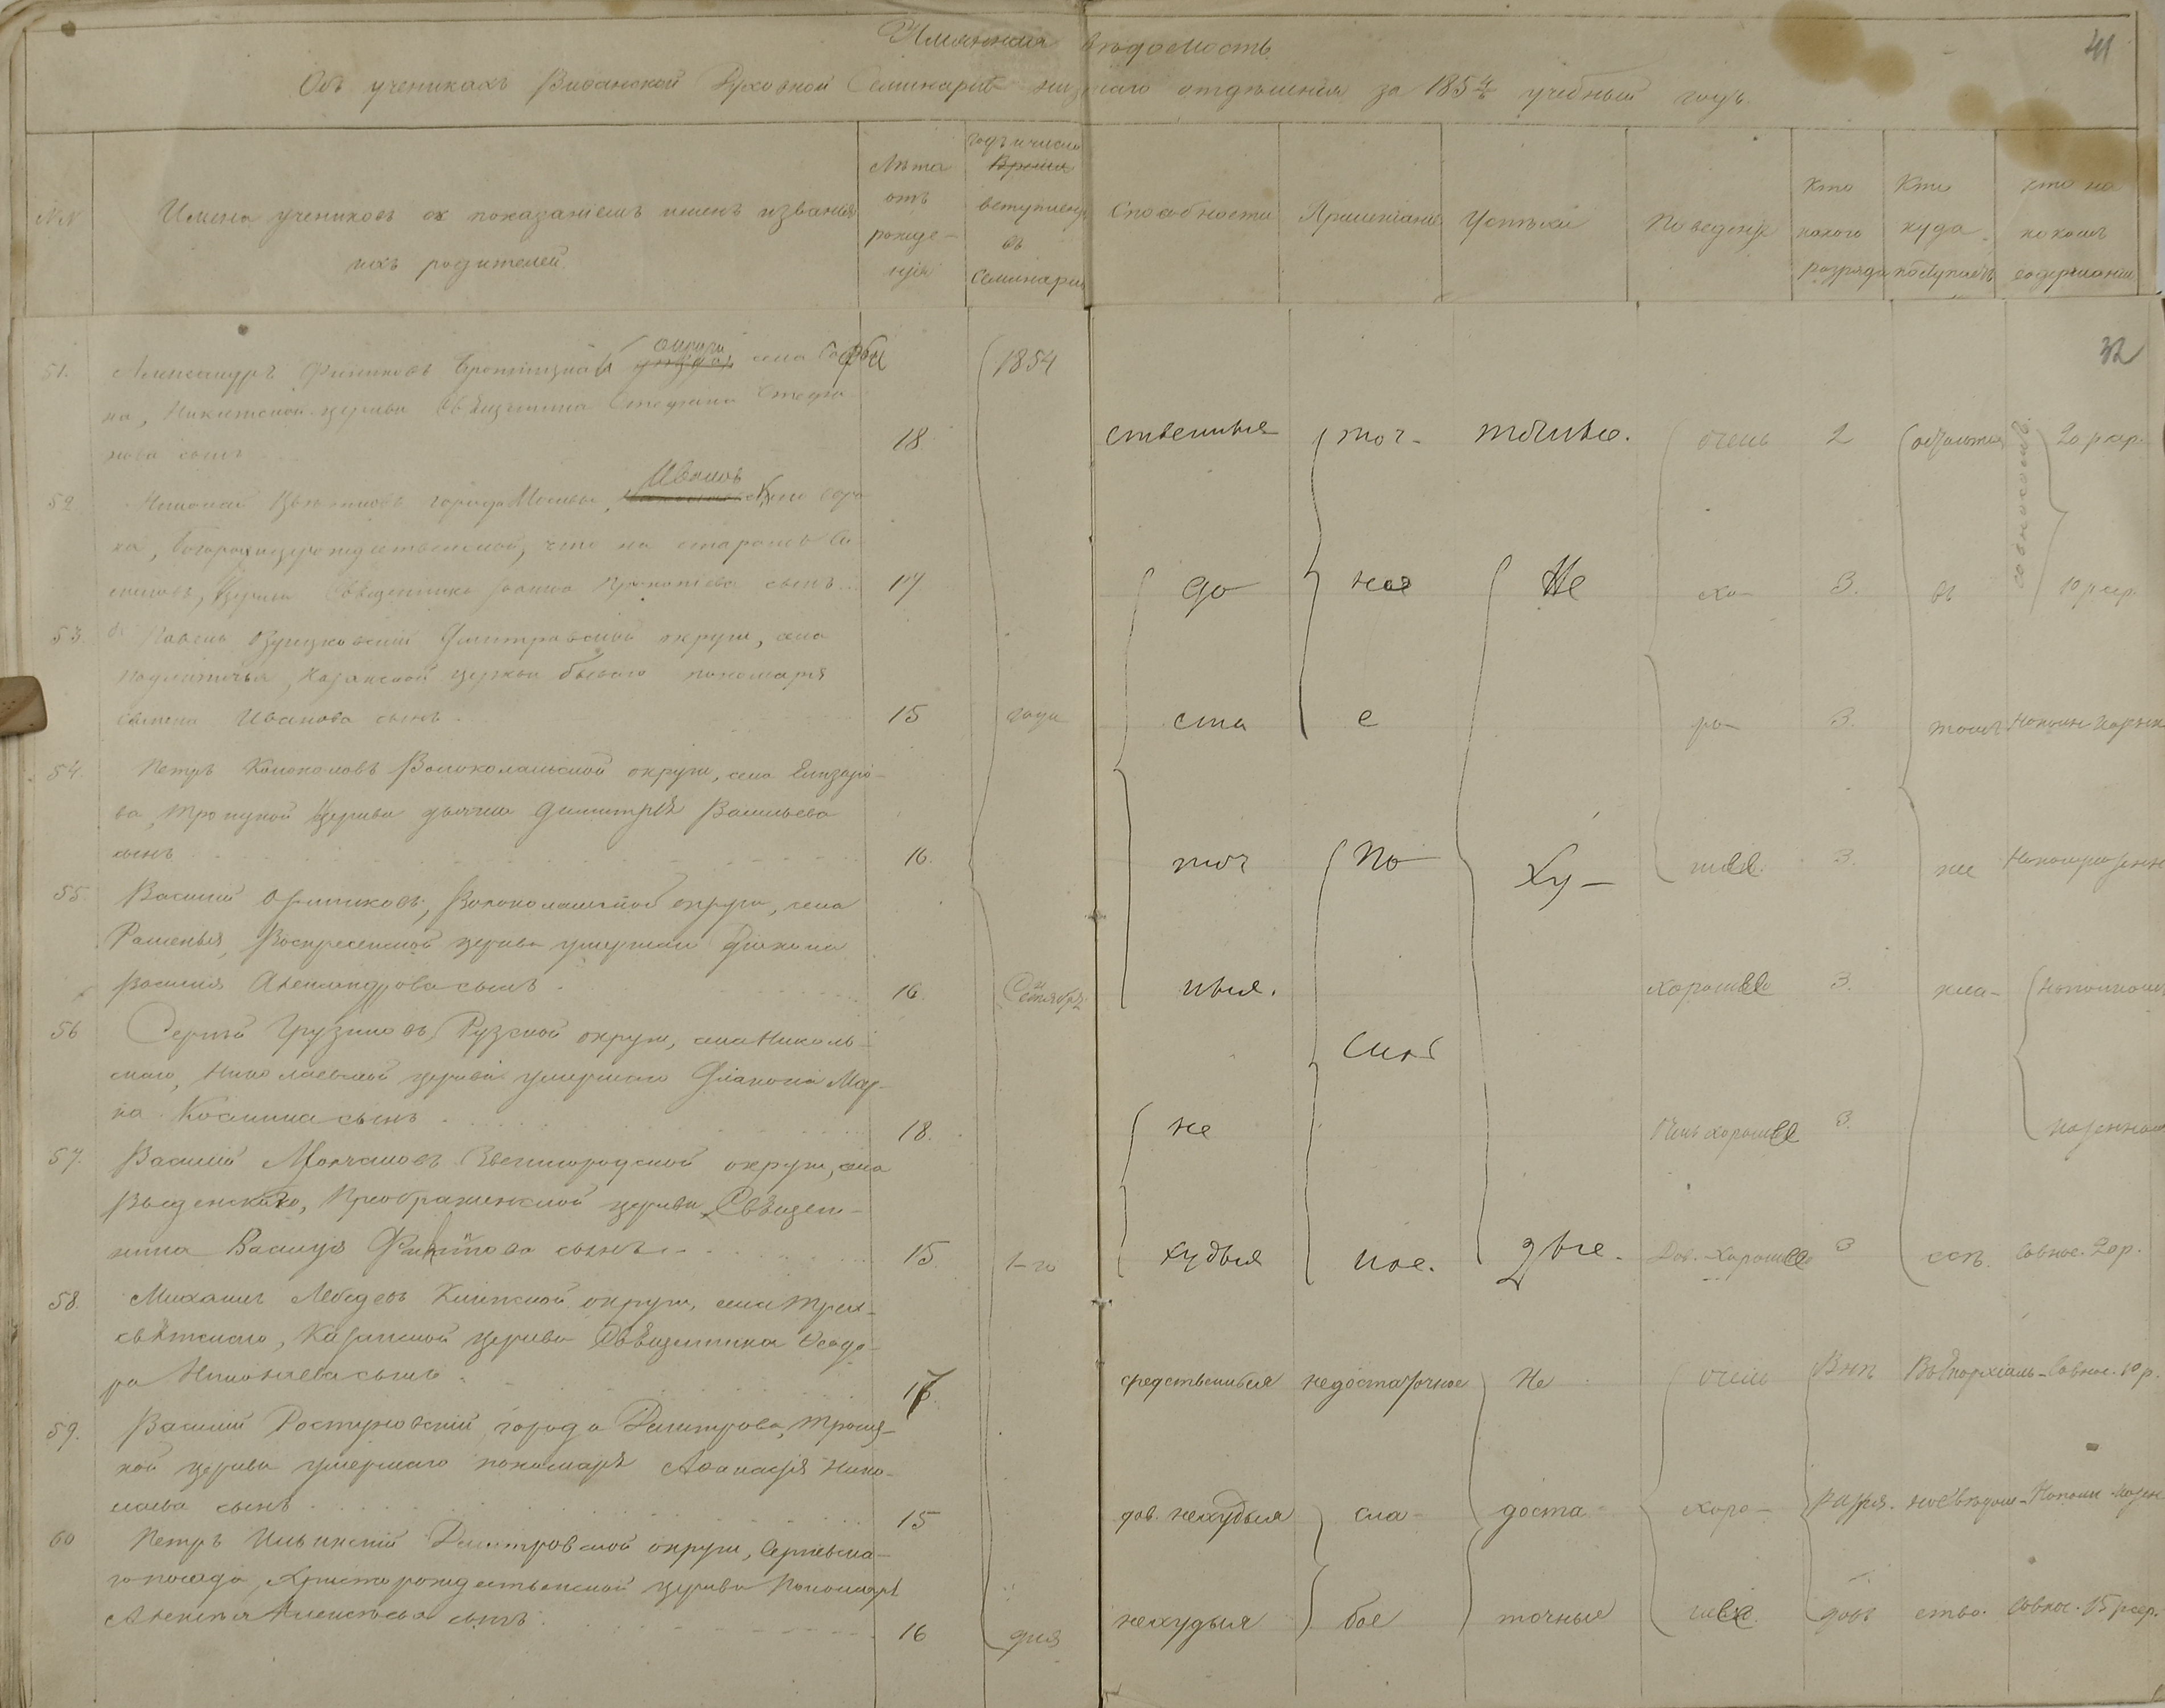 Имянная вѣдомость
41
Объ ученикахъ Виѳанской Духовной Семинаріи низшаго отдѣленія за 1854/5 учебный годъ.
№№
Имена учениковъ съ показаніемъ именъ и званія
ихъ родителей.
Лѣта
отъ
рожде-
нія
Годъ и число
Время
вступленія
въ
Семинарію
Способности
Прилежаніе
Успѣхи
Поведеніе
Кто
какого
разряда
Кто
куда
поступаетъ
кто на
какомъ
содержаніи
32
51. Александръ Финиковъ Бронницкой округи уѣзда села
на, Никитской церкви Священника Стефана Стефа-
нова сынъ
18.
1854
ственныя
точ-
точные.
очень
2
20 р. сер.
52. Николай Цвѣтковъ города Москвы, Иванов скаго соро-
ка, Богородицерождественской, что на старомъ Ва-
ганковѣ, Церкви Священника Іоанна Прокопіева сынъ
17
до
ное
Не
хо-
3.
въ
Совнокошт.
10 р. сер.
53. Павелъ Дмитровской округи, села
Подлипичья, Казанской церкви бывшаго пономаря
Семена Иванова сынъ.
15
года
ста
е
ро-
3.
томъ
54. Петръ Колоколовъ Волоколамской округи, села Елизаро-
ва, Троицкой Церкви дьячка Димитрія Васильева
сынъ
16.
точ
По
Ху-
шее.
3.
же
55. Василій Волоколамской округи, села
Раменья, Воскресенской церкви умершаго Діакона
Василія Александрова сынъ.
16.
Сентября
ныя.
хорошее
3.
кла-
56 Сергѣй Грузиновъ Рузской округи, села Николь-
скаго, Николаевской церкви умершаго Діакона Мар-
ка Косьмина сынъ
18.
не
Очень хорошее
3.
57. Василій Молчановъ Звенигородской округи, села
Введенскаго, Преображенской церкви Священ-
ника Василія Филиппова сынъ
15
1-го
худыя
ное.
дые.
Дов. хорошее
3
ссѣ.
Совнос. 20 р.
58. Михаилъ Лебедевъ Клинской округи, села Трех-
святскаго, Казанской церкви Священника Ѳеодо-
ра Николаева сынъ
17
средственныя
недостаточное
Не
очень
Внѣ
Въ Епархіаль-
Совнос. 10 р.
59. Василій Ростуновскій города Дмитрова, Троиц-
кой церкви умершаго пономаря Аѳанасія Нико-
лаева сынъ
15
дов. нехудыя
сла-
доста-
хоро-
разря-
60 Петръ Ильинскій Дмитровской округи, Сергіевска-
го посада, Христорождественской церкви Пономаря
Алексѣя Алексѣева сынъ
16
дня
нехудыя
бое
точные
шее.
довъ
ство.
Совнос. 15 р. сер.